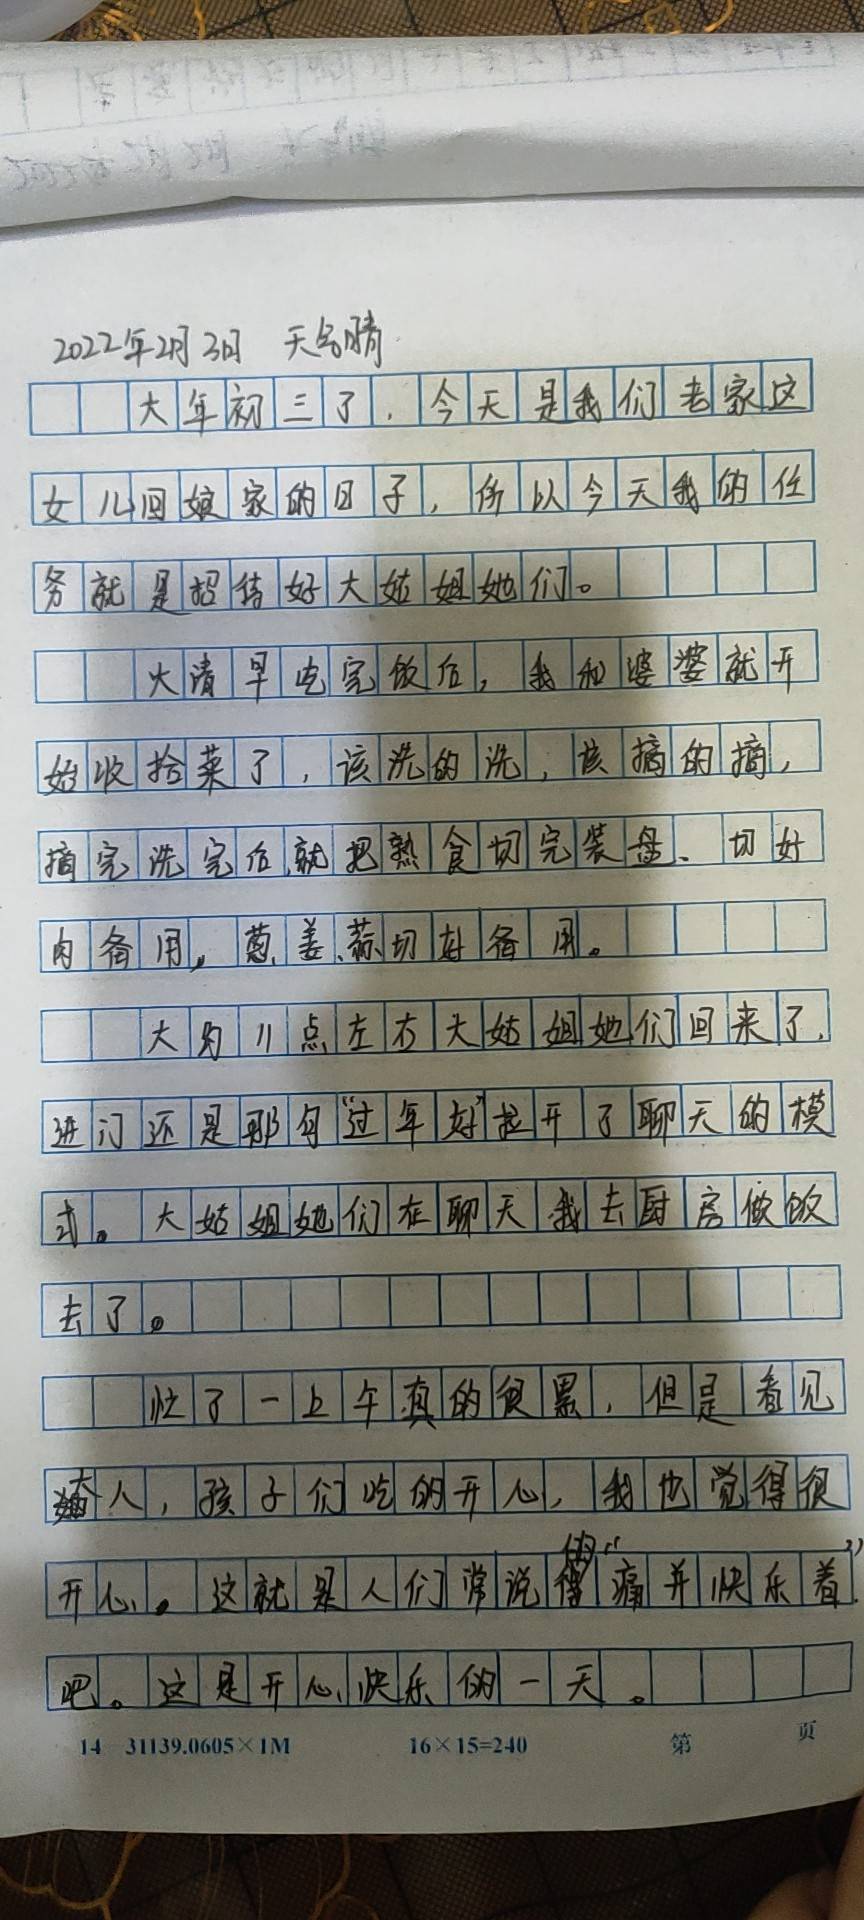 2022年2月3日 天气晴
大年初三了,今天是我们老家这
女儿回娘家的日子,所以今天我的任
务就是招待好大姑姐她们。
大清早吃完饭后,我和婆婆就开
始收拾菜了,该洗的洗,该摘的摘,
摘完洗完后,就把熟食切完装盘、切好
肉备用,葱、姜、蒜切好备用。
大约11点左右大姑姐她们回来了,
进门还是那句“过年好”拉开了聊天的模
式。大姑姐她们在聊天,我去厨房做饭
去了。
忙了一上午真的很累,但是看见
大人,孩子们吃的开心,我也觉得很
开心。这就是人们常说的“痛并快乐着”
吧。这是开心、快乐的一天。
14 31139.0605×1M 16×15=240 第 页